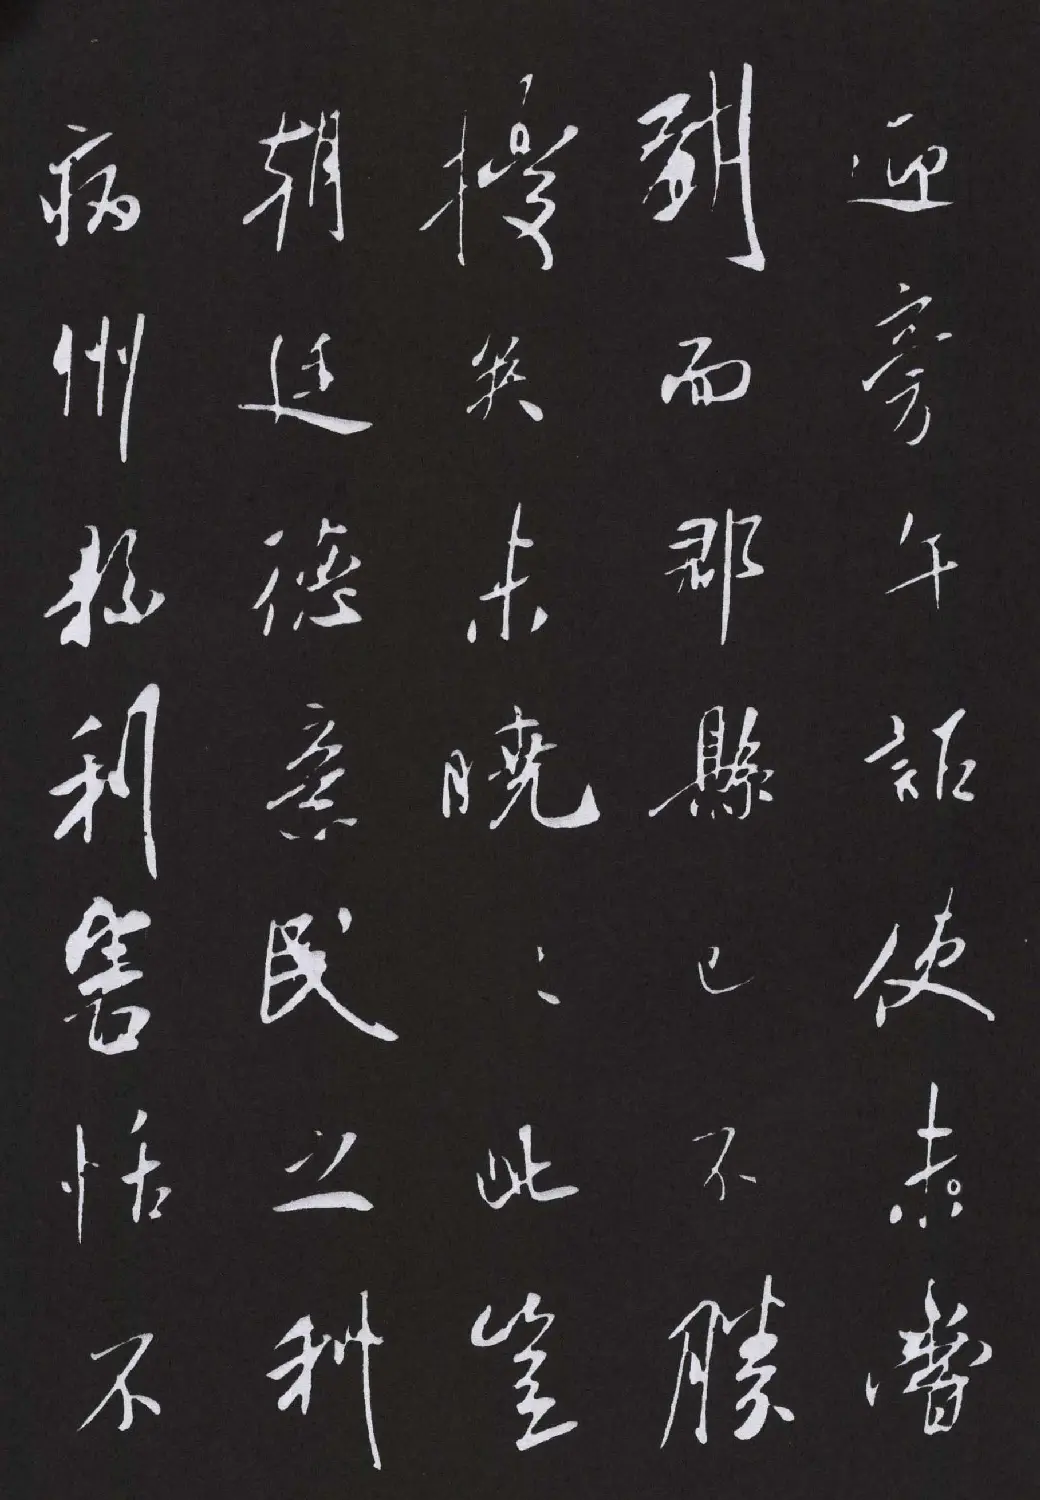 迎旁午詎使未嘗
到而郡縣已不勝
擾矣未曉〻此豈
朝廷德意民之利
病州縣利害恬不